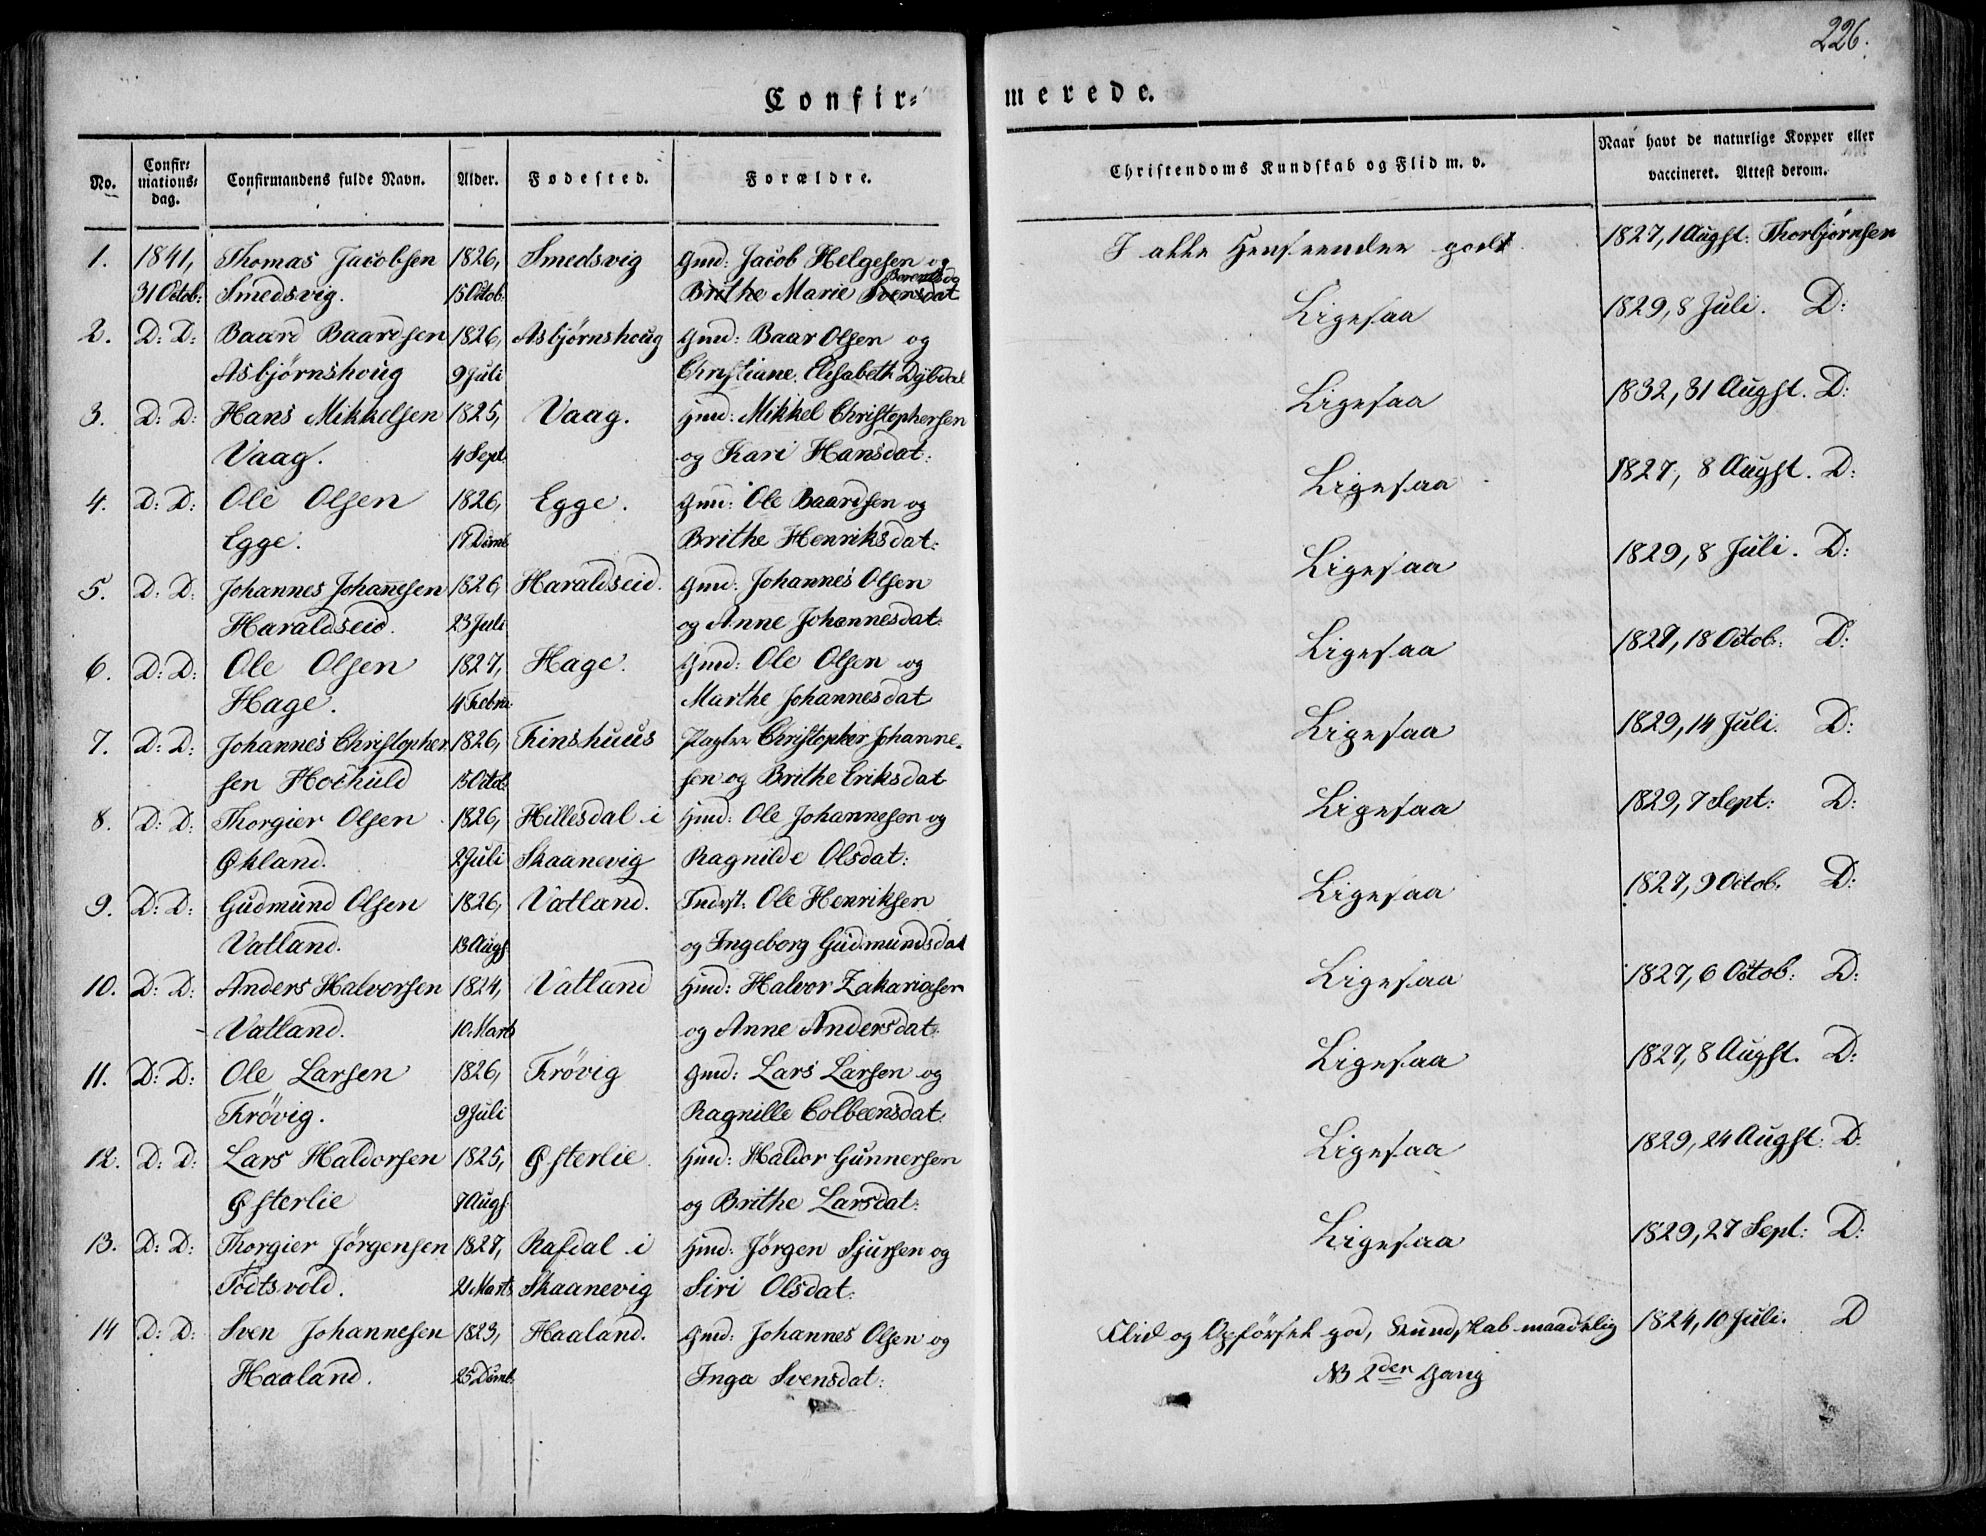 226.
Confir-
merede.
No.
Confirmationsdag.
Confirmandens fulde Navn.
Alder.
Fødested.
Forældre.
Christendoms Kundskab og Flid m. v.
Naar havt de naturlige Kopper eller
vaccineret. Attest derom.
1. 1841, Thomas Jacobsen 1826, Smedsvig Gmd: Jacob Helgesen og I alle Henseender godt 1827, 1 Augst: Thorbjørnsen
31 Octob: Smedsvig. 15 Octob: Brithe Marie Svensdat
2. D: D: Baard Baardsen 1826, Asbjørnshoug Gmd: Baar Olsen og Ligesaa 1829, 8 Juli. D:
Asbjørnshoug 9 Juli Christiane Elisabeth
3. D: D: Hans Mikkelsen 1825, Vaag. Hmd: Mikkel Christophersen Ligesaa 1832, 31 Augst. D:
Vaag. 4 Sept. og Kari Hansdat:
4. D: D: Ole Olsen 1826, Egge. Gmd: Ole Baardsen og Ligesaa 1827, 8 Augst. D:
Egge. 17 Dcmb Brithe Henriksdat:
5. D: D: Johannes Johannesen 1826, Haraldseid. Gmd: Johannes Olsen Ligesaa 1829, 8 Juli. D:
Haraldseid. 23 Juli og Anne Johannesdat:
6. D: D: Ole Olsen 1827, Hage. Gmd: Ole Olsen og Ligesaa 1827, 18 Octob: D:
Hage. 4 Febru: Marthe Johannesdat
7. D: D: Johannes Christopher 1826, Finshuus Pagter Christopher Johanne- Ligesaa 1829, 14 Juli. D:
sen Hoehuld 15 Octob: sen og Brithe Eriksdat
8. D: D: Thorgier Olsen 1826, Hillesdal i Hmd: Ole Johannesen og Ligesaa 1829, 7 Sept: D:
Økland. 2 Juli Skaanevig Ragnilde Olsdat:
9. D: D: Gudmund Olsen 1826, Vatland. Inderst: Ole Henriksen Ligesaa 1827, 9 Octob. D:
Vatland. 13 Augs og Ingeborg Gudmundsdat
10. D: D: Anders Halvorsen 1824, Vatland Hmd: Halvor Zakariasen Ligesaa 1827, 6 Octob: D:
Vatland. 10 Marts og Anne Andersdat:
11. D: D: Ole Larsen 1826, Frövig Gmd: Lars Larsen og Ligesaa 1827, 8 Augst. D:
Frövig. 9 Juli Ragnille Colbeensdat:
12. D: D: Lars Haldorsen 1825, Østerlie. Hmd: Haldor Gunnersen Ligesaa 1829, 24 Augst: D:
Østerlie 7 Augs og Brithe Larsdat:
13. D: D: Thorgier Jörgensen 1827, Rafdal i Hmd: Jörgen Sjursen og Ligesaa 1829, 27 Sept: D:
Todtsvold. 21 Marts Skaanevig Siri Olsdat:
14 D: D: Sven Johannesen 1823, Haaland. Gmd: Johannes Olsen og Flid og Opförsel god, Kundskab maadelig 1824, 10 Juli. D
Haaland. 25 Dcmb: Inga Svensdat: NB 2den Gang